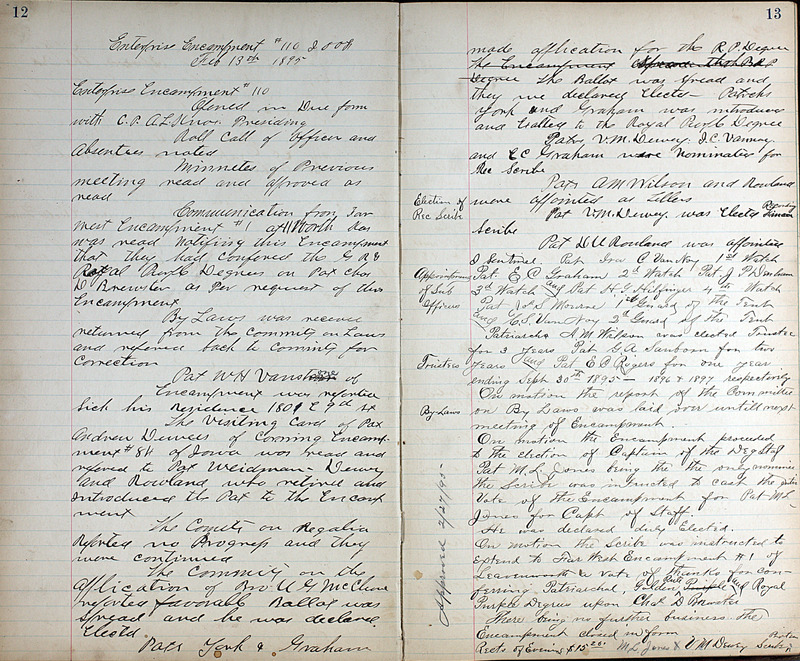 12
Enterprise Encampment #110 I O O F
Feb 13th 1895
Enterprise Encampment #110
Opened in Due form
with C.P. A.L. Knox Presiding
Roll Call of Officer and
Absentees noted
Minnetes of Previous
meeting read and approved as
read
Communication from Far
West Encampment #1
was read notifying this Encampment
that they had confered the G R &
Royal Purple Degrees on Pat Chas
D Brewster as Per request of this
Encampment
By Laws was received
returned from the Committy on Laws
and refered back to Committy for
Correction
Pat W H of
Encampment was reported
Sick his residence 1801 E 9th St
The Visiting Card of Pat
Andrew Duwees of Corning Encamp-
ment #84 of Iowa was read and
refered to Pat Weidman - Dewey
and Rowland who retired and
introduced the Pat to the Encamp
ment
The Comity on Regalia
reported no Progress and they
were continued
The Committy on the
application of Bro U G McClure
reported favorable Ballot was
spread and he was declared
Elected
Pats York & Graham
13
made application for the R.P. Degree
The Encampment
Degree The Ballot was spread and
they we declared Elected - Patchs
York and Graham was introduced
and to the Royal Purple Degree
Pats V.M. Dewey J.C. Vannoy
and E C Graham were Nominated for
Rec Scribe
Pats A M Wilson and Rowland
Election of
Rec Scribe
were appointed as tellers
Pat V.M. Dewey was Elected Recording
Scribe
Pat D U Rowland was appointed
I Sentinel. Pat Ira C Van Noy 1st Watch
Appointment
of Sub
Officers
Pat E C Graham 2d Watch Pat J P Denham
3d Watch and Pat H G Hilfinger 4th Watch
Pat Jas Monroe 1st Guard of the Tent
and C.S. Van Noy 2d Guard of the Tent
Patriarchs A M Wilson was elected Trustee
for 3 Years Pat G A Sanborn for two
Trustees
Years and Pat E C Rogers for one year
ending Sept 30th 1895 - 1896 & 1897 respectively
On motion the report of the Committee
By-Laws
on By Laws was laid over untill next
meeting of Encampment.
On motion the Encampment proceeded
to the election of Captain of the Deg Staf
Pat M.L. Jones being the the only nominee
the Scribe was instructed to cast the entire
Vote of the Encampment for Pat M L
Jones for Capt of Staff.
He was declared duly Elected.
On motion the Scribe was instructed to
extend to Far West Encampment #1 of
Leavenworth a vote of thanks for con-
ferring Patriarchal, Golden Rule and Royal
Purple Degrees upon Chas D Brewster
There being no further business the
Encampment closed in form
Rects of Evening $15.20 M L Jones & V M Dewey Scribe
Approved 2/27/95